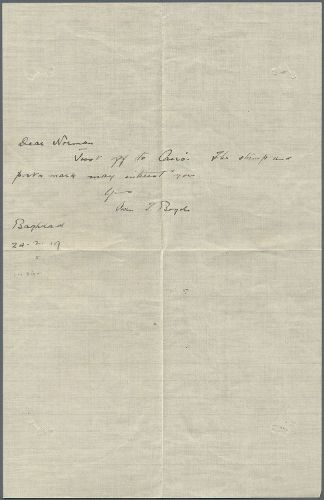 Dear Norman
Just off to Cairo. The stamp and
post mark may interest you
Yrs
Boyd
Baghdad
24-2-19